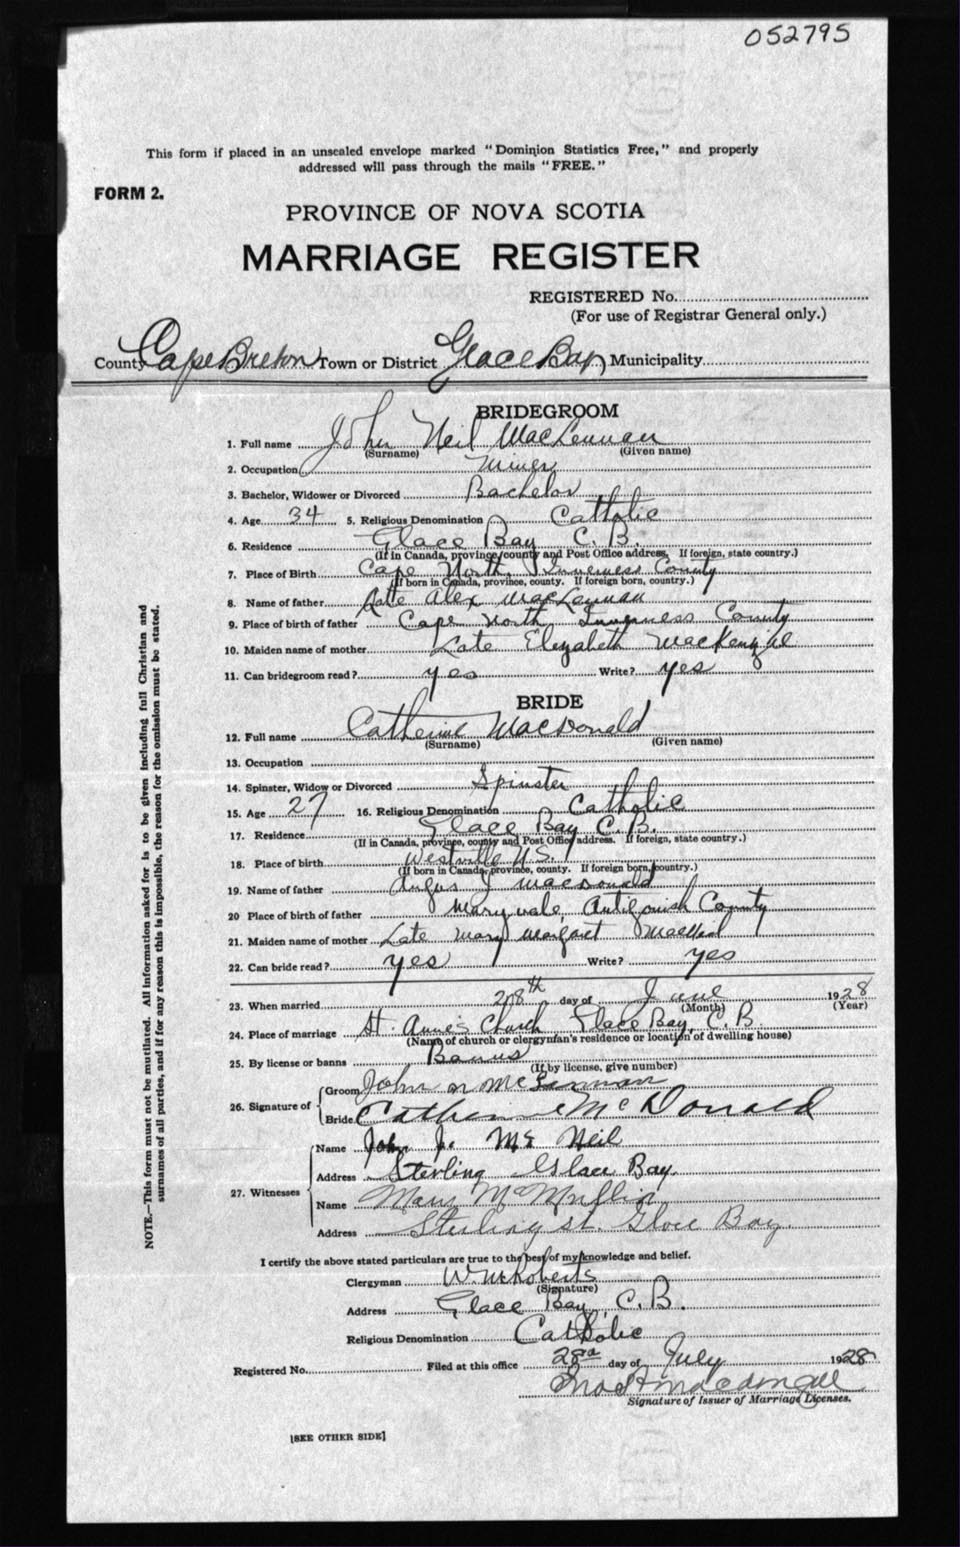 052795
This form if placed in an unsealed envelope marked "Dominion Statistics Free," and properly
addressed will pass through the mails "FREE."
FORM 2.
PROVINCE OF NOVA SCOTIA
MARRIAGE REGISTER
REGISTERED No.
(For use of Registrar General only.)
County Cape Breton Town or District Glace Bay Municipality
BRIDEGROOM
1. Full name John Neil MacLennan
(Surname) (Given name)
2. Occupation Miner
3. Bachelor, Widower or Divorced Bachelor
4. Age 34 5. Religious Denomination Catholic
6. Residence Glace Bay C. B.
(If in Canada, province, county and Post Office address. If foreign, state country.)
7. Place of Birth Cape North, Inverness County
(If born in Canada, province, county. If foreign born, country.)
8. Name of father Late Alex MacLennan
9. Place of birth of father Cape North Inverness County
10. Maiden name of mother Late Elizabeth MacKenzie
11. Can bridegroom read? yes Write? yes
BRIDE
12. Full name Catherine MacDonald
(Surname) (Given name)
13. Occupation
14. Spinster, Widow or Divorced Spinster
15. Age 27 16. Religious Denomination Catholic
17. Residence Glace Bay C. B.
(If in Canada, province, county and Post Office address. If foreign, state country.)
18. Place of birth Westville N.S.
(If born in Canada, province, county. If foreign born, country.)
19. Name of father Angus J MacDonald
20 Place of birth of father Maryvale, Antigonish County
21. Maiden name of mother Late Mary Margaret
22. Can bride read? yes Write? yes
23. When married 28th day of June 1928
(Month) (Year)
24. Place of marriage St. Anne's Church Glace Bay, C. B
(Name of church or clergyman's residence or location of dwelling house)
25. By license or banns Banns
(If by license, give number)
26. Signature of Groom John n McLennan
Bride Catherine McDonald
27. Witnesses Name John J. Mc Neil
Address Sterling Glace Bay.
Name Mary McMullin
Address Sterling st. Glace Bay.
I certify the above stated particulars are true to the best of my knowledge and belief.
Clergyman W. McRoberts
(Signature)
Address Glace Bay, C. B.
Religious Denomination Catholic
Registered No. Filed at this office day of July 1928
Signature of Issuer of Marriage Licenses.
[SEE OTHER SIDE]
NOTE.—This form must not be mutilated. All information asked for is to be given including full Christian and
surnames of all parties, and if for any reason this is impossible, the reason for the omission must be stated.